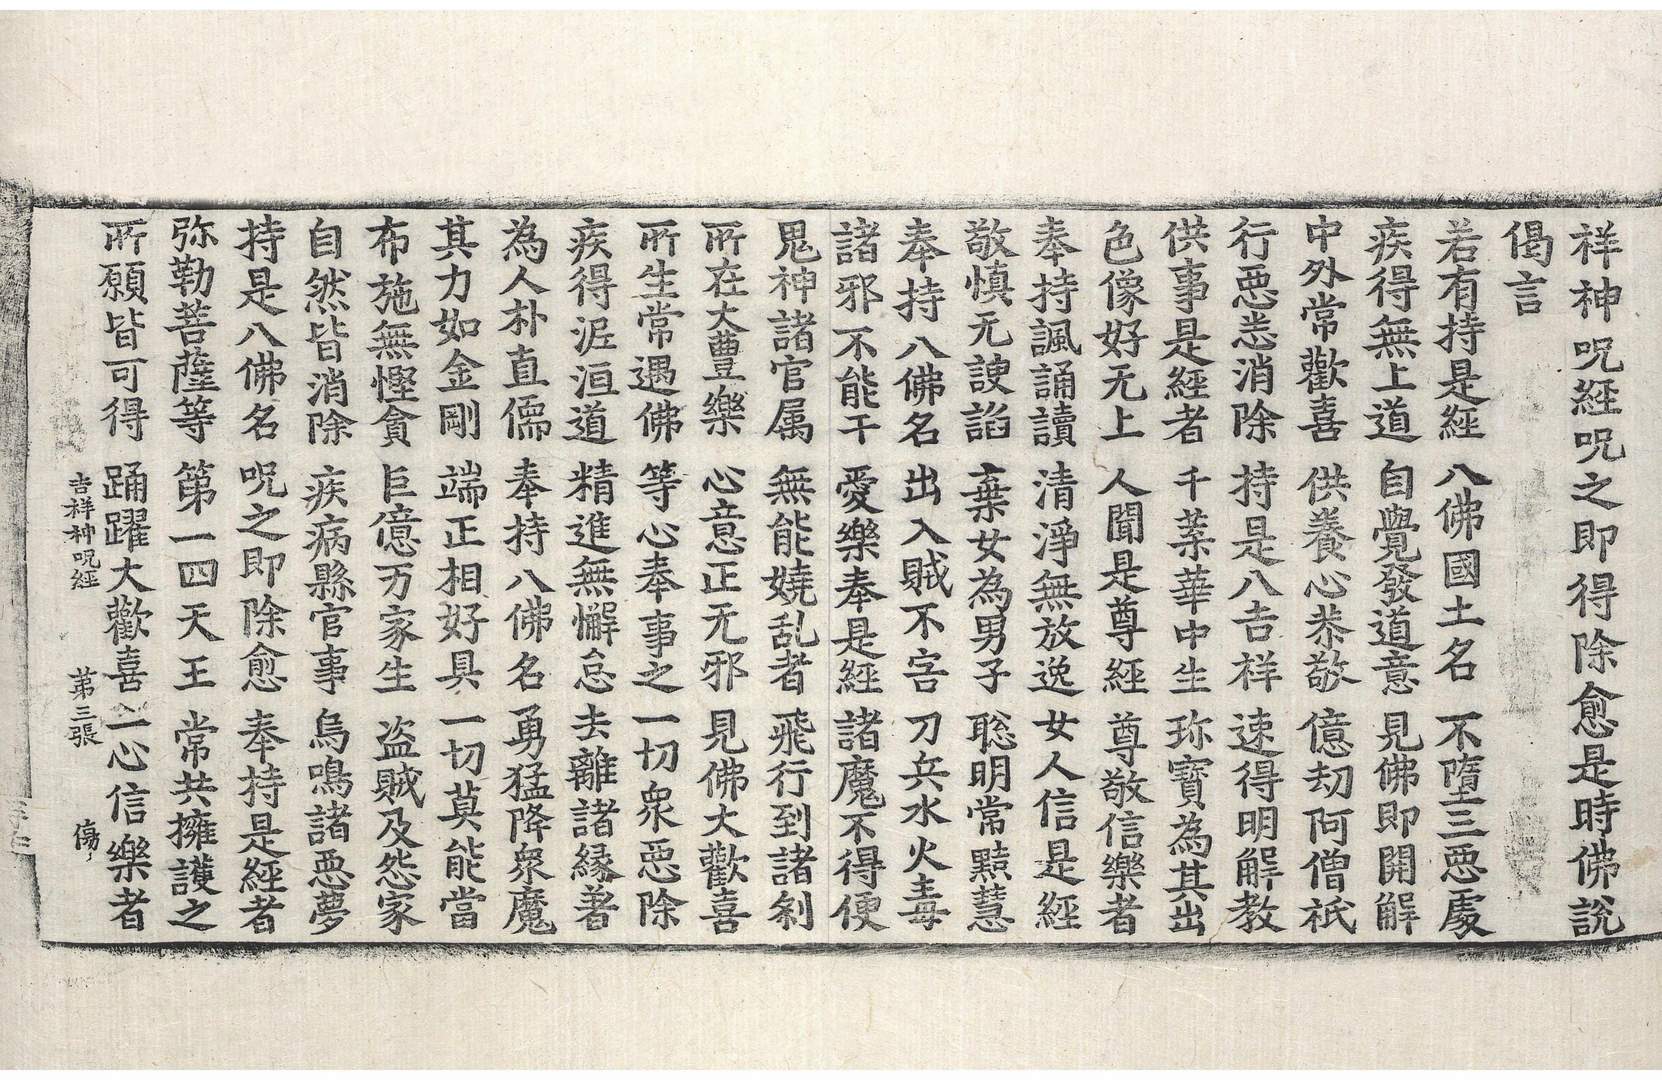 祥神呪經呪之即得除愈是時佛說
偈言
若有持是經 八佛國土名 不墮三惡處
疾得無上道 自覺發道意 見佛即開解
中外常歡喜 供養心恭敬 億劫阿僧祇
行惡恙消除 持是八吉祥 速得明解教
供事是經者 千葉華中生 珎寶為其出
色像好无上 人聞是尊經 尊敬信樂者
奉持諷誦讀 清淨無放逸 女人信是經
敬慎无諛諂 棄女為男子 聡明常黠慧
奉持八佛名 出入賊不害 刀兵水火毒
諸邪不能干 愛樂奉是經 諸魔不得便
鬼神諸官属 無能嬈乱者 飛行到諸刹
所在大豊樂 心意正无邪 見佛大歡喜
所生常遇佛 等心奉事之 一切衆惡除
疾得泥洹道 精進無懈怠 去離諸縁著
為人朴直儒 奉持八佛名 勇猛降衆魔
其力如金剛 端正相好具 一切莫能當
布施無慳貪 巨億万家生 盗賊及怨家
自然皆消除 疾病縣官事 烏鳴諸惡夢
持是八佛名 呪之即除愈 奉持是經者
弥勒菩薩等 第一四天王 常共擁護之
所願皆可得 踊躍大歡喜 一心信樂者
吉祥神呪經 第三張 傷